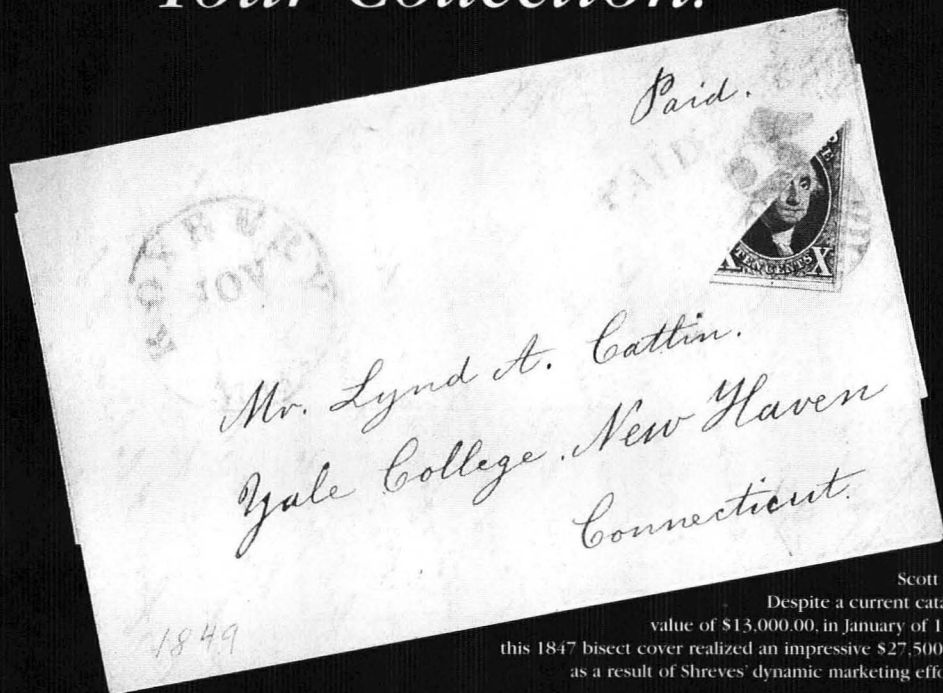 Your Collection
Paid.
PAID
ROXBURY
X TEN CENTS X
Mr. Lynd A. Cattin.
Yale College. New Haven
Connecticut.
1849
Scott
Despite a current cata
value of $13,000.00, in January of 1
this 1847 bisect cover realized an impressive $27,500
as a result of Shreves' dynamic marketing effo